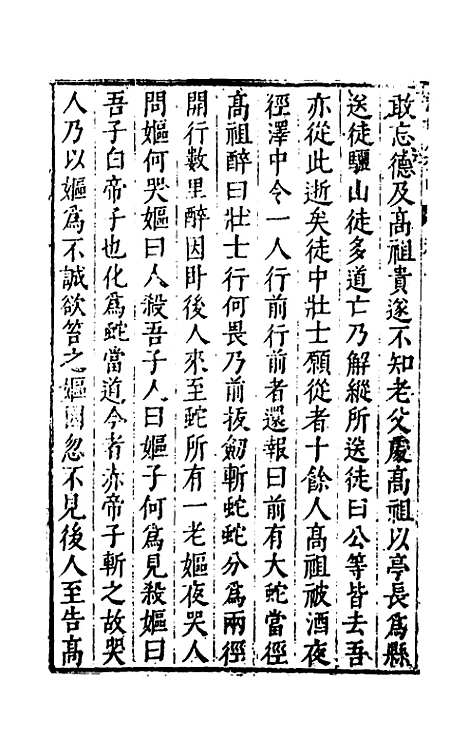 敢忘德及高祖貴遂不知老父處高祖以亭長爲縣
送徒驪山徒多道亡乃解縱所送徒曰公等皆去吾
亦從此逝矣徒中壯士願從者十餘人高祖被酒夜
徑澤中令一人行前行前者還報曰前有大蛇當徑
高祖醉曰壯士行何畏乃前拔劒斬蛇蛇分爲兩徑
開行數里醉因卧後人來至蛇所有一老嫗夜哭人
問嫗何哭嫗曰人殺吾子人曰嫗子何爲見殺嫗曰
吾子白帝子也化爲蛇當道今者赤帝子斬之故哭
人乃以嫗爲不誠欲笞之嫗因忽不見後人至告高